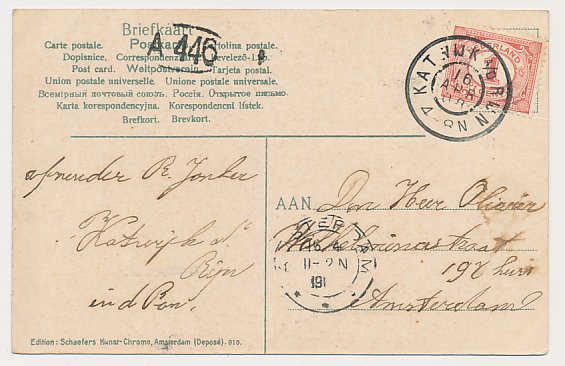 Briefkaart
A 446
Carte postale. Postkarte Holina postale.
Dopisnice. Correspondenzkarte Levelező-lap.
Post card. Weltpostverein. Tarjeta postal.
Union postale universelle. Unione postale universale.
Всемірный почтовый союзъ. Россія. Открытое письмо.
Karta korespondencyjna. Korespondenci lístek.
Brefkort. Brevkort.
KATWIJK A/D RIJN
16 APR
4-8N
afzender R. Jonker
Katwijk a/d
Rijn
AAN
Den Heer Olivier
Wilhelminastraat
197 huis
Amsterdam
11-2N
191
Edition: Schaefers Kunst-Chromo, Amsterdam (Deposé). 010.